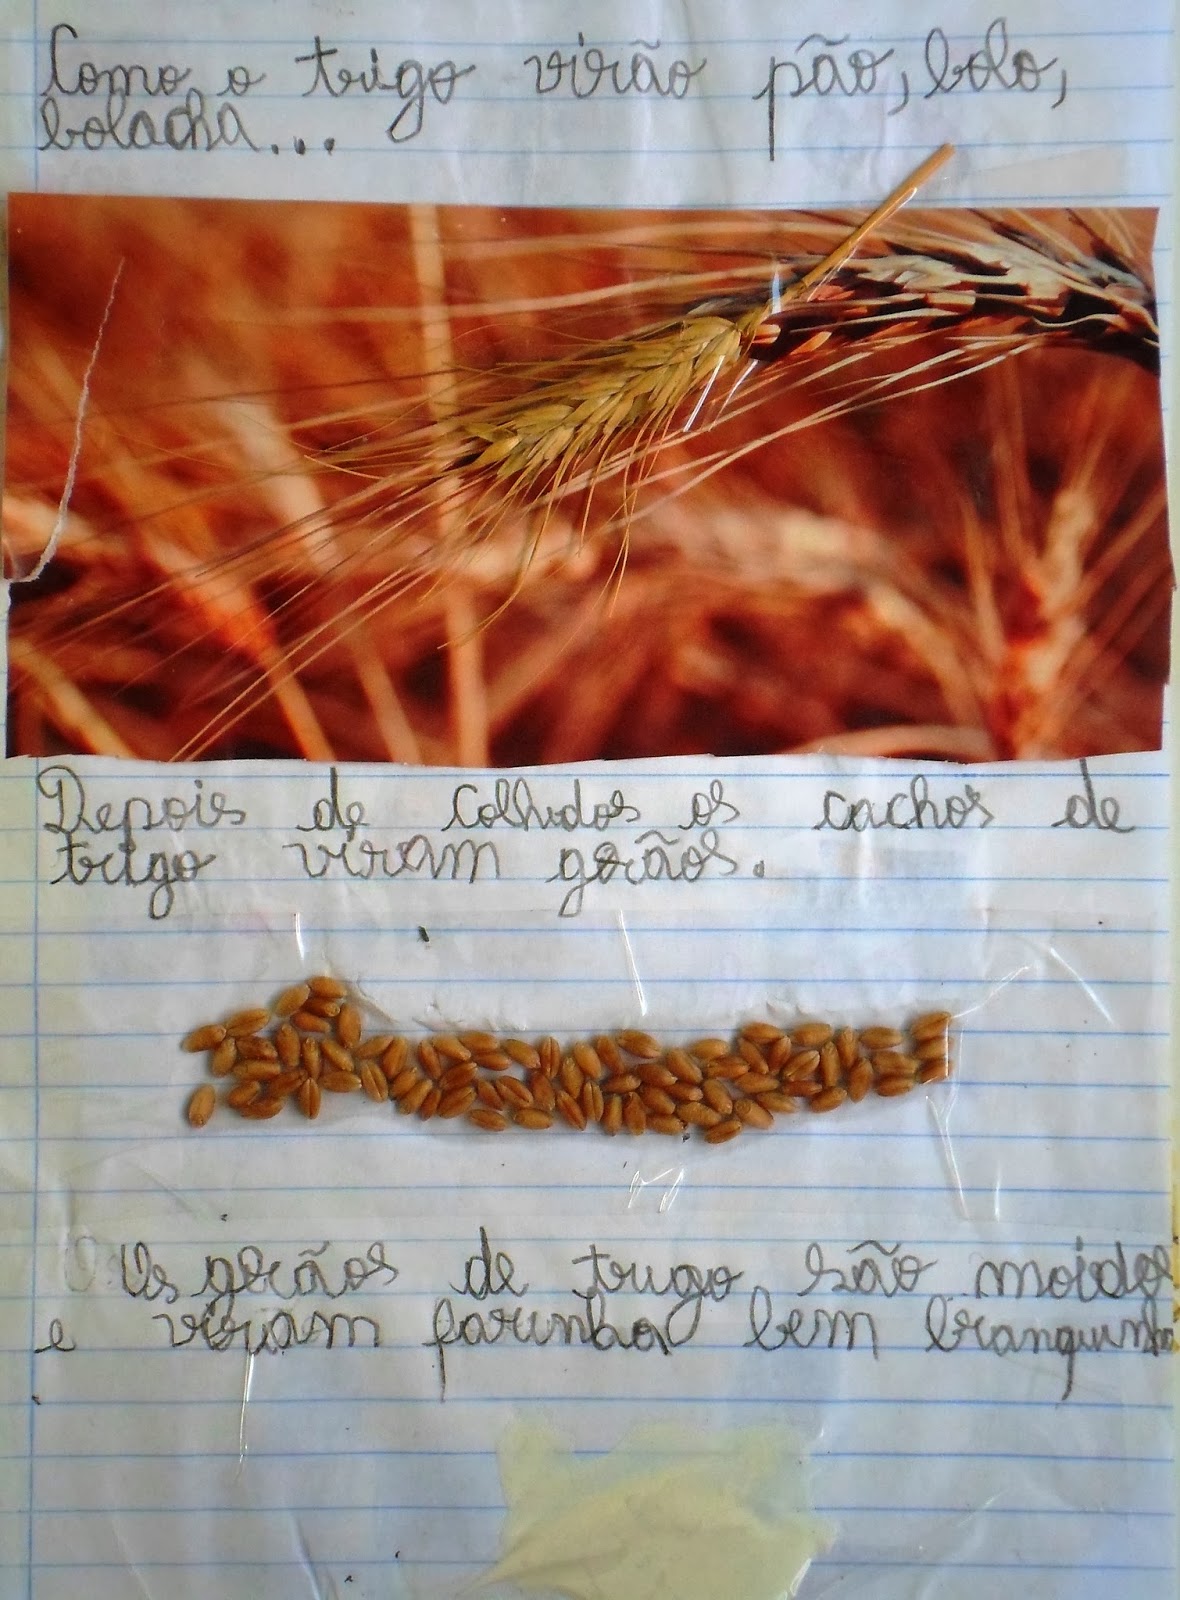 Como o trigo virão pão, bolo,
bolacha...
Depois de colhidos os cachos de
trigo viram grãos.
Os grãos de trigo são moidos
e viram farinha bem branquinha